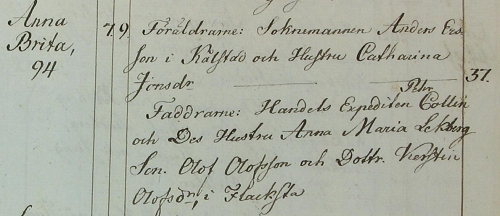 Anna
Brita,
94
7. 9. Föräldrarne: Soknemannen Anders Ers
son i Kälstad och Hustru Catharina
Jonsdr 37.
Petr
Faddrarne: Handels Expediten Collin
och Des Hustru Anna Maria Lekberg
Son. Olof Olofsson och Dottr. Kerstin
Olofsdr, i Flacksta